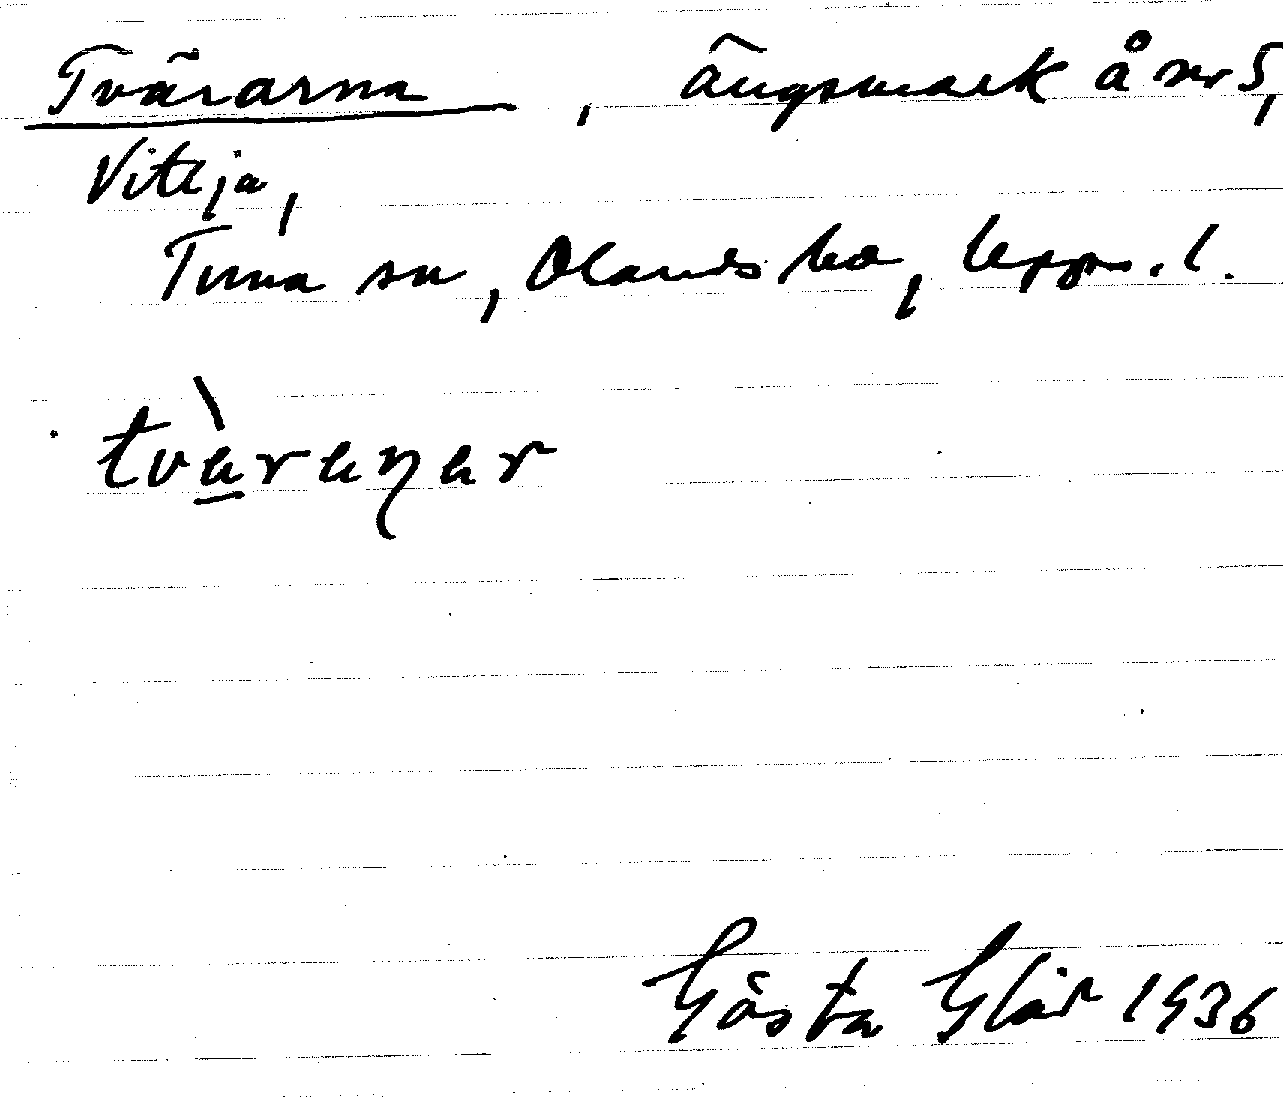 Tvärarna, ängsmark å nr 5,
Viteja,
Tuna sn, Olands hd, Upps. l.
tvàraŋar
Gösta Glår 1936